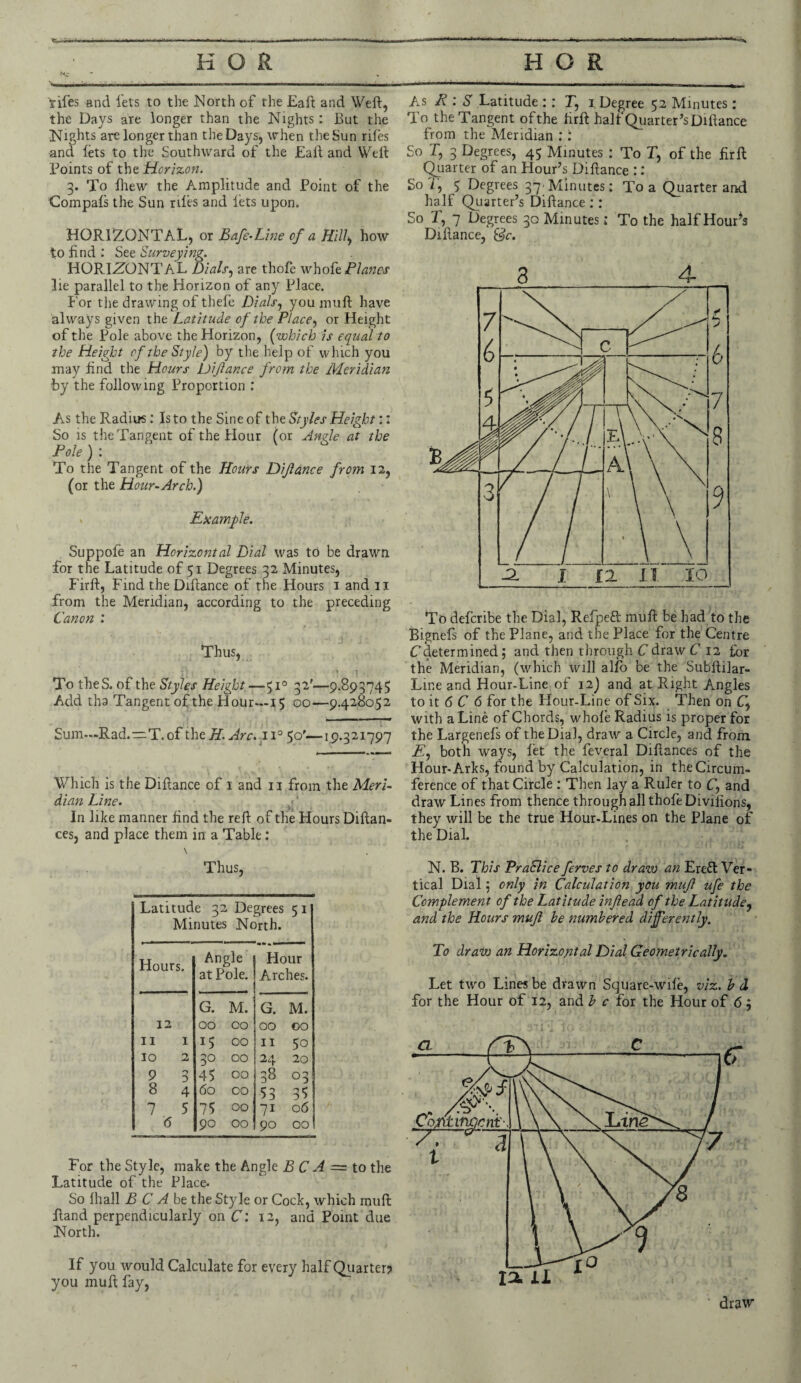 H O R
H O R
rifes and fets to the North of the Eaft and Weft,
the Days are longer than the Nights: But the
Nights are longer than the Days, when the Sun rifes
and fets to the Southward of the Eaft and Weft
Points of the Horizon.
3. To fhew the Amplitude and Point of the
Compafs the Sun rifes and fets upon.
HORIZONTAL, or Bafe-Line of a Hill, how
to find: See Surveying.
HORIZONTAL Dials, are thofe whofe Planes
lie parallel to the Horizon of any Place.
For the drawing of thefe Dials, you muft have
always given the Latitude of the Place, or Height
of the Pole above the Horizon, (which is equal to
the Height of the Style) by the help of which you
may find the Hours Diftance from the Meridian
by the following Proportion:
As the Radius: Is to the Sine of the Styles Height::
So is the Tangent of the Hour (or Angle at the
Pole):
To the Tangent of the Hours Diftance from 12,
(or the Hour-Arch.)
Example.
Suppofe an Horizontal Dial was to be drawn
for the Latitude of 51 Degrees 32 Minutes,
Firft, Find the Diftance of the Hours 1 and 11
from the Meridian, according to the preceding
Canon:
Thus,
To the S. of the Styles Height—51° 32'—9.893745
Add tha Tangent of the Hour--15 00—9.428052
Sum---Rad.=T. of the H. Arc. 11° 50'—19.321797
Which is the Diftance of 1 and 11 from the Meri-
dian Line.
In like manner find the reft of the Hours Diftan-
ces, and place them in a Table:
Thus,
Latitude 32 Degrees 51
Minutes North.
Hours. Angle at Pole. Hour Arches.
G. M. G. M.
12 00 00 00 00
11 1 15 00 11 50
10 2 30 00 24 20
9 3 45 00 38 03
8 4 60 00 53 35
7 5 75 00 71 06
6 90 00 90 00
For the Style, make the Angle B C A = to the
Latitude of the Place.
So fhall B C A be the Style or Cock, which muft
ftand perpendicularly on C: 12, and Point due
North.
If you would Calculate for every half Quarter,
you muft fay,
As R : S Latitude :: T, 1 Degree 52 Minutes:
To the Tangent of the firft half Quarter's Diftance
from the Meridian ::
So T, 3 Degrees, 45 Minutes: To T, of the firft
Quarter of an Hour's Diftance ::
So T, 5 Degrees 37 Minutes: To a Quarter and
half Quarter's Diftance ::
So T, 7 Degrees 30 Minutes: To the half Hour's
Diftance, &c.
8 4
7 5
6 C 6
5 7
4 E 8
B A
3 9
2 1 12 11 10
To defcribe the Dial, Refpect muft be had to the
Bignefs of the Plane, and the Place for the Centre
C determined; and then through C draw C 12 for
the Meridian, (which will alfo be the Subftilar-
Line and Hour-Line of 12) and at Right Angles
to it 6 C 6 for the Hour-Line of Six. Then on C,
with a Line of Chords, whofe Radius is proper for
the Largenefs of the Dial, draw a Circle, and from
E, both ways, fet the feveral Diftances of the
Hour-Arks, found by Calculation, in the Circum-
ference of that Circle: Then lay a Ruler to C, and
draw Lines from thence through all thofe Divifions,
they will be the true Hour-Lines on the Plane of
the Dial.
N. B. This Practice ferves to draw an Erect Ver-
tical Dial; only in Calculation you muft ufe the
Complement of the Latitude inftead of the Latitude,
and the Hours muft be numbered differently.
To draw an Horizontal Dial Geometrically.
Let two Lines be drawn Square-wife, viz. b d
for the Hour of 12, and b c for the Hour of 6;
a b c 6
e f
Contingent Line
i d 7
8
9
12 11 10
draw